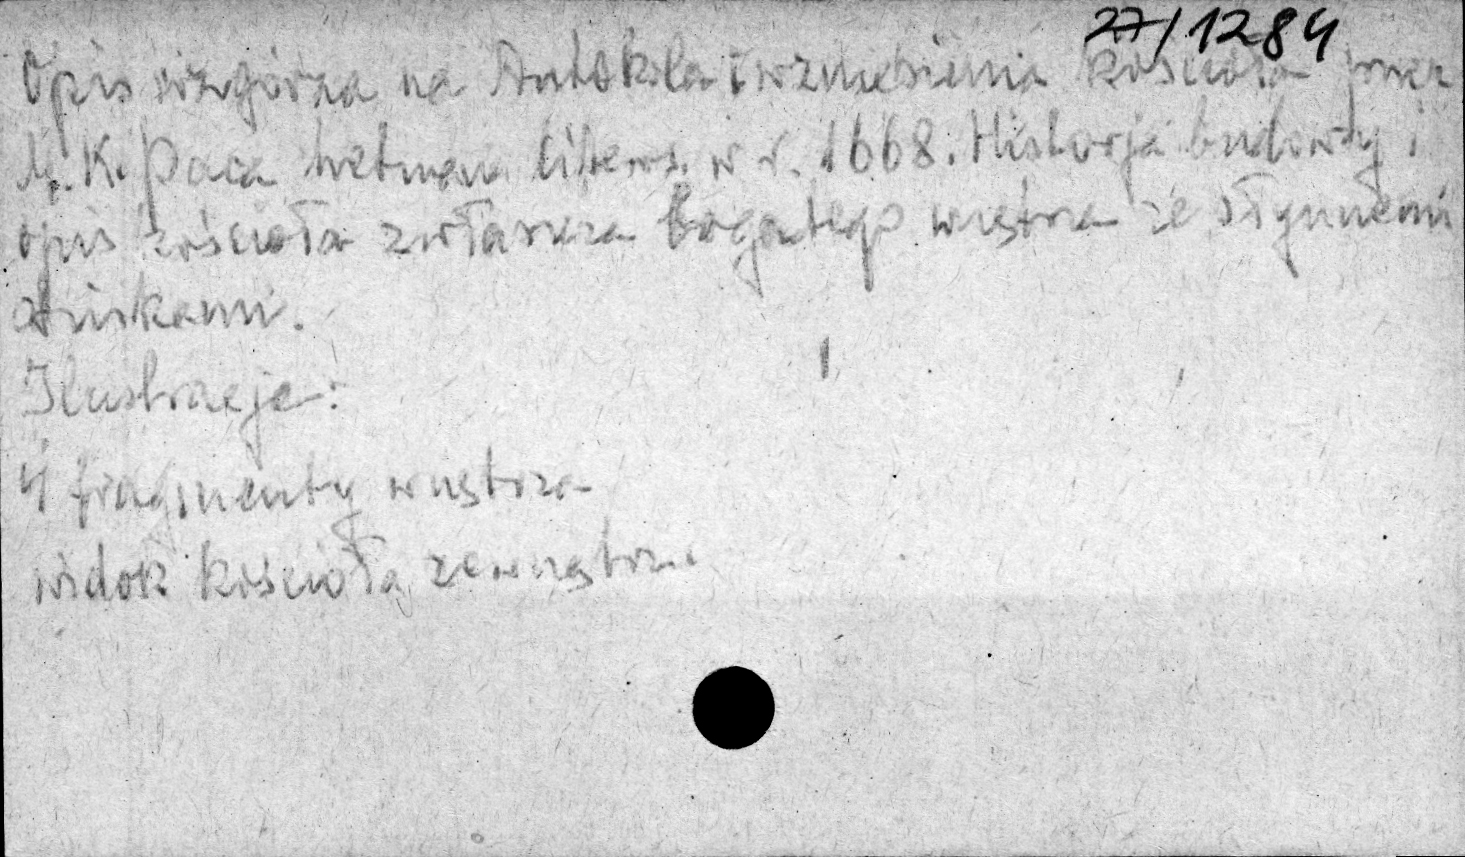 27/1284
Opis wzgórza na Antokolu i wzniesienia kościoła przez
M. K. Paca hetmana litews. w r. 1668. Historja budowy i
opis kościoła zwłaszcza bogatego wnętrza ze słynnemi
stiukami.
Ilustracje:
4 fragmenty wnętrza
widok kościoła zewnątrz